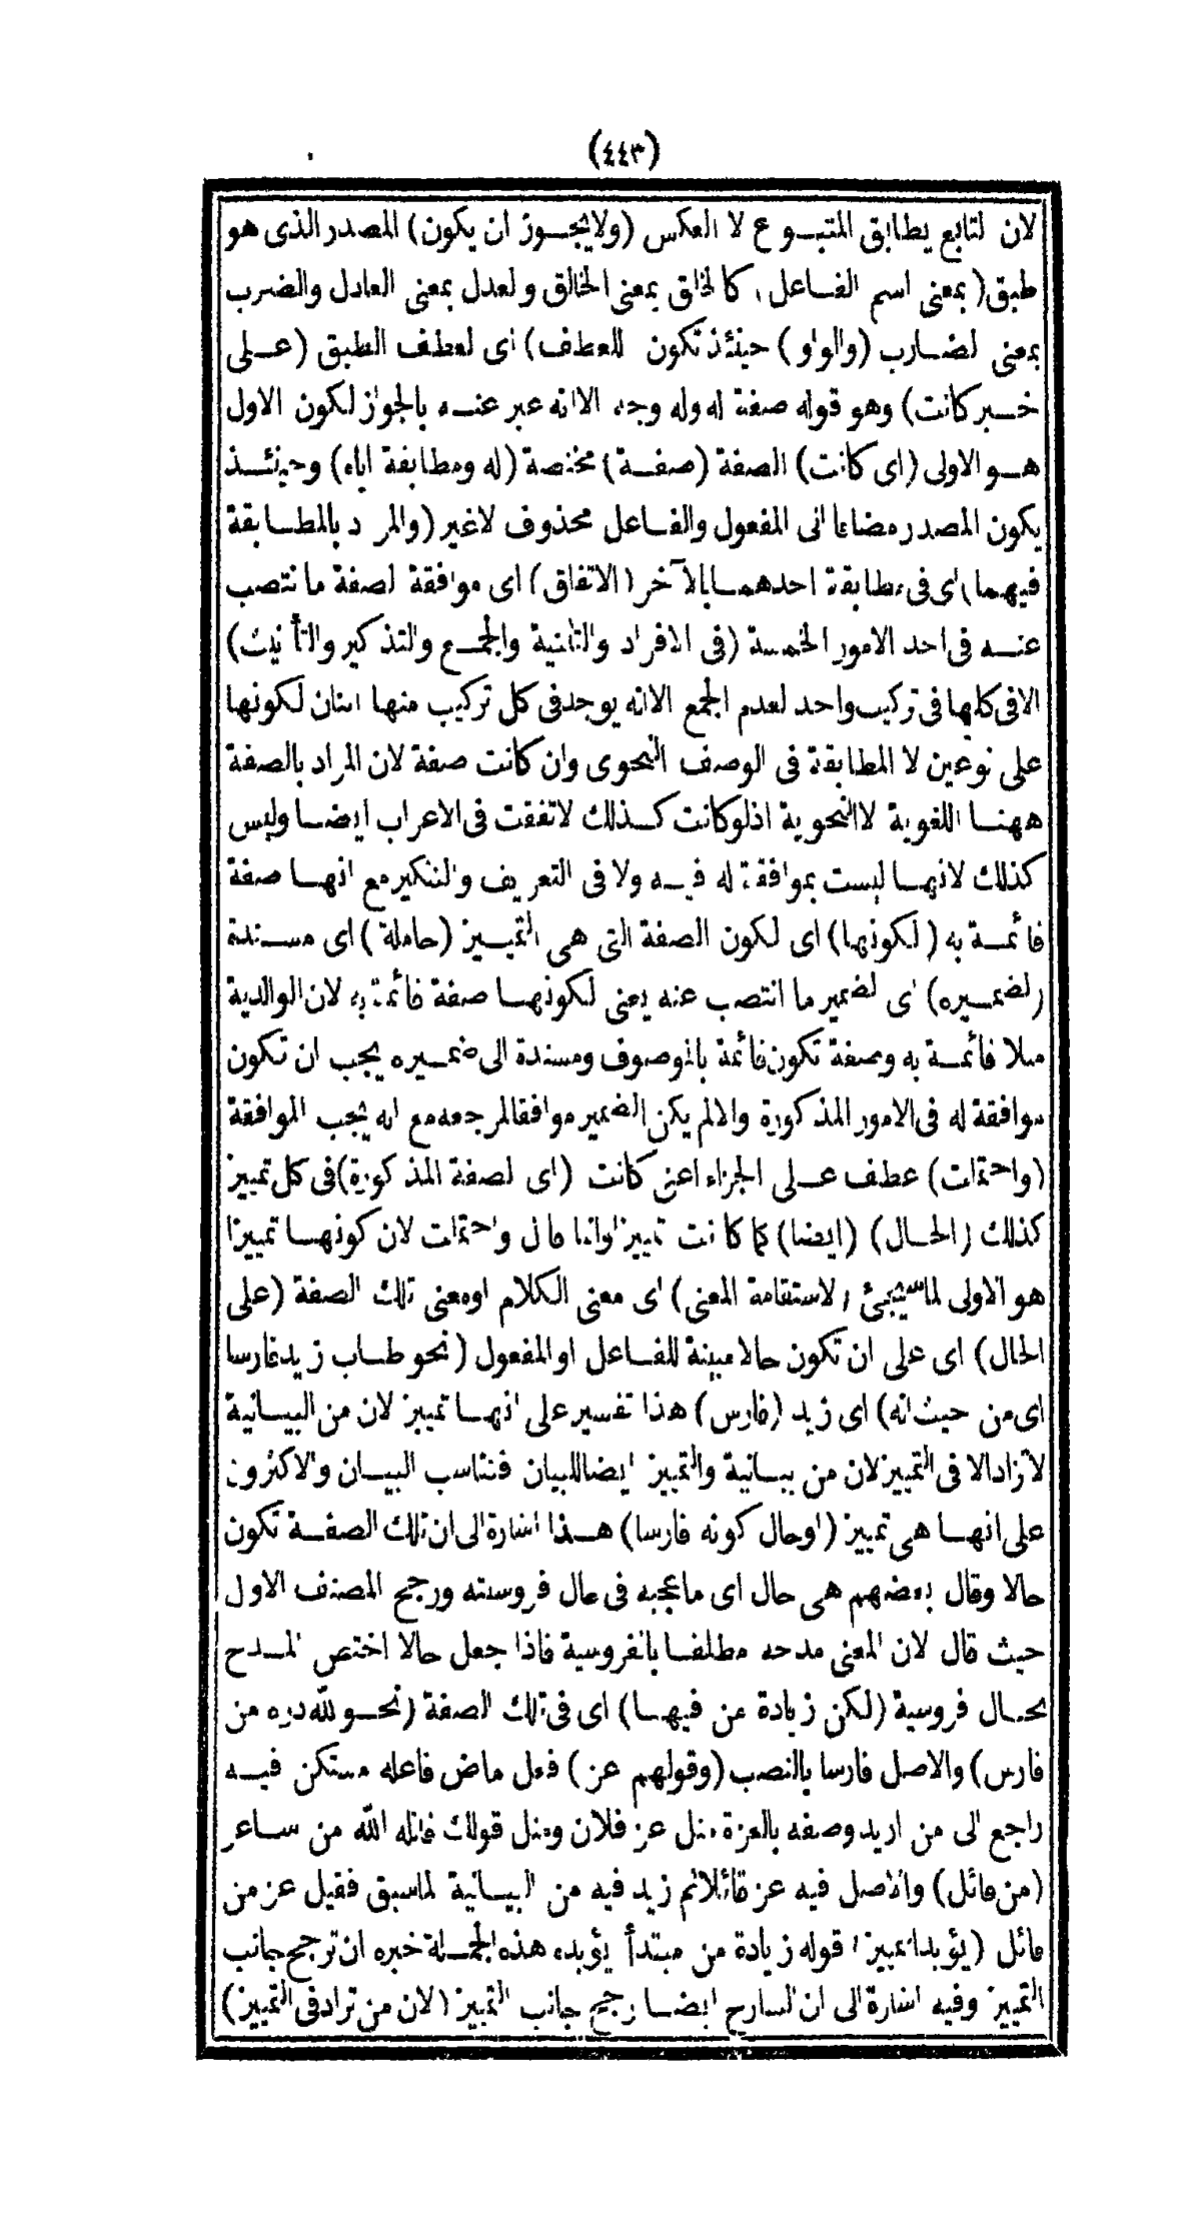 (٤٤٣)
لان التابع يطابق المتبوع لا العكس (ولايجوز ان يكون) المصدر الذى هو
طبق (بمعنى اسم الفاعل) كالخلق بمعنى الخالق والعدل بمعنى العادل والضرب
بمعنى الضارب (والواو) حينئذ تكون للعطف) اى لعطف الطبق (على
خبر كانت) وهو قوله صفة له وله وجه الا انه عبر عنه بالجواز لكون الاول
هو الاولى (اى كانت) الصفة (صفة) مختصة (له ومطابقة اياه) وحينئذ
يكون المصدر مضافا الى المفعول والفاعل محذوف لاغير (والمراد بالمطابقة
فيهما) اى فى مطابقة احدهما بالآخر (الاتفاق) اى موافقة الصفة ما نتصب
عنه فى احد الامور الخمسة (فى الافراد والتثنية والجمع والتذكير والتأنيث)
لا فى كلها فى تركيب واحد لعدم الجمع الا انه يوجد فى كل تركيب منها اثنان لكونها
على نوعين لا المطابقة فى الوصف النحوى وان كانت صفة لان المراد بالصفة
ههنا اللغوية لا النحوية اذ لو كانت كذلك لاتفقت فى الاعراب ايضا وليس
كذلك لانها ليست بموافقة له فيه ولا فى التعريف والتنكير مع انها صفة
قائمة به (لكونها) اى لكون الصفة التى هى التمييز (حاملة) اى مسندة
(لضميره) اى لضمير ما انتصب عنه يعنى لكونها صفة قائمة به لان الوالدية
مثلا قائمة به وصفة تكون قائمة بالموصوف ومسندة الى ضميره يجب ان تكون
موافقة له فى الامور المذكورة والا لم يكن الضمير موافقا لمرجعه مع انه يجب الموافقة
(واحتملت) عطف على الجزاء اعنى كانت (اى الصفة المذكورة) فى كل تمييز
كذلك (الحال) (ايضا) كما كانت تمييزا وانما قال واحتملت لان كونها تمييزا
هو الاولى لما سيجئ (لاستقامة المعنى) اى معنى الكلام او معنى تلك الصفة (على
الحال) اى على ان تكون حالا مبينة للفاعل او المفعول (نحو طاب زيد فارسا
اى من حيث انه) اى زيد (فارس) هذا تفسير على انها تمييز لان من البيانية
لا تزاد الا فى التمييز لان من بيانية والتمييز ايضا للبيان فتناسب البيان والاكثرون
على انها هى تمييز (او حال كونه فارسا) هذا اشارة الى ان تلك الصفة تكون
حالا وقال بعضهم هى حال اى ما اعجبه فى حال فروسته ورجح المصنف الاول
حيث قال لان المعنى مدحه مطلقا بالفروسية فاذا جعل حالا اختص المدح
بحال فروسية (لكن زيادة من فيها) اى فى تلك الصفة (نحو لله دره من
فارس) والاصل فارسا بالنصب (وقولهم عز) فعل ماض فاعله مستكن فيه
راجع الى من اريد وصفه بالعزة مثل عز فلان ومثل قولك قاتله الله من شاعر
(من قائل) والاصل فيه عز قائلا ثم زيد فيه من البيانية لما سبق فقيل عز من
قائل (يؤيد التمييز) قوله زيادة من مبتدأ يؤيده هذه الجملة خبره ان ترجح جانب
التمييز وفيه اشارة الى ان الشارح ايضا رجح جانب التمييز (لان من تزاد فى التمييز)